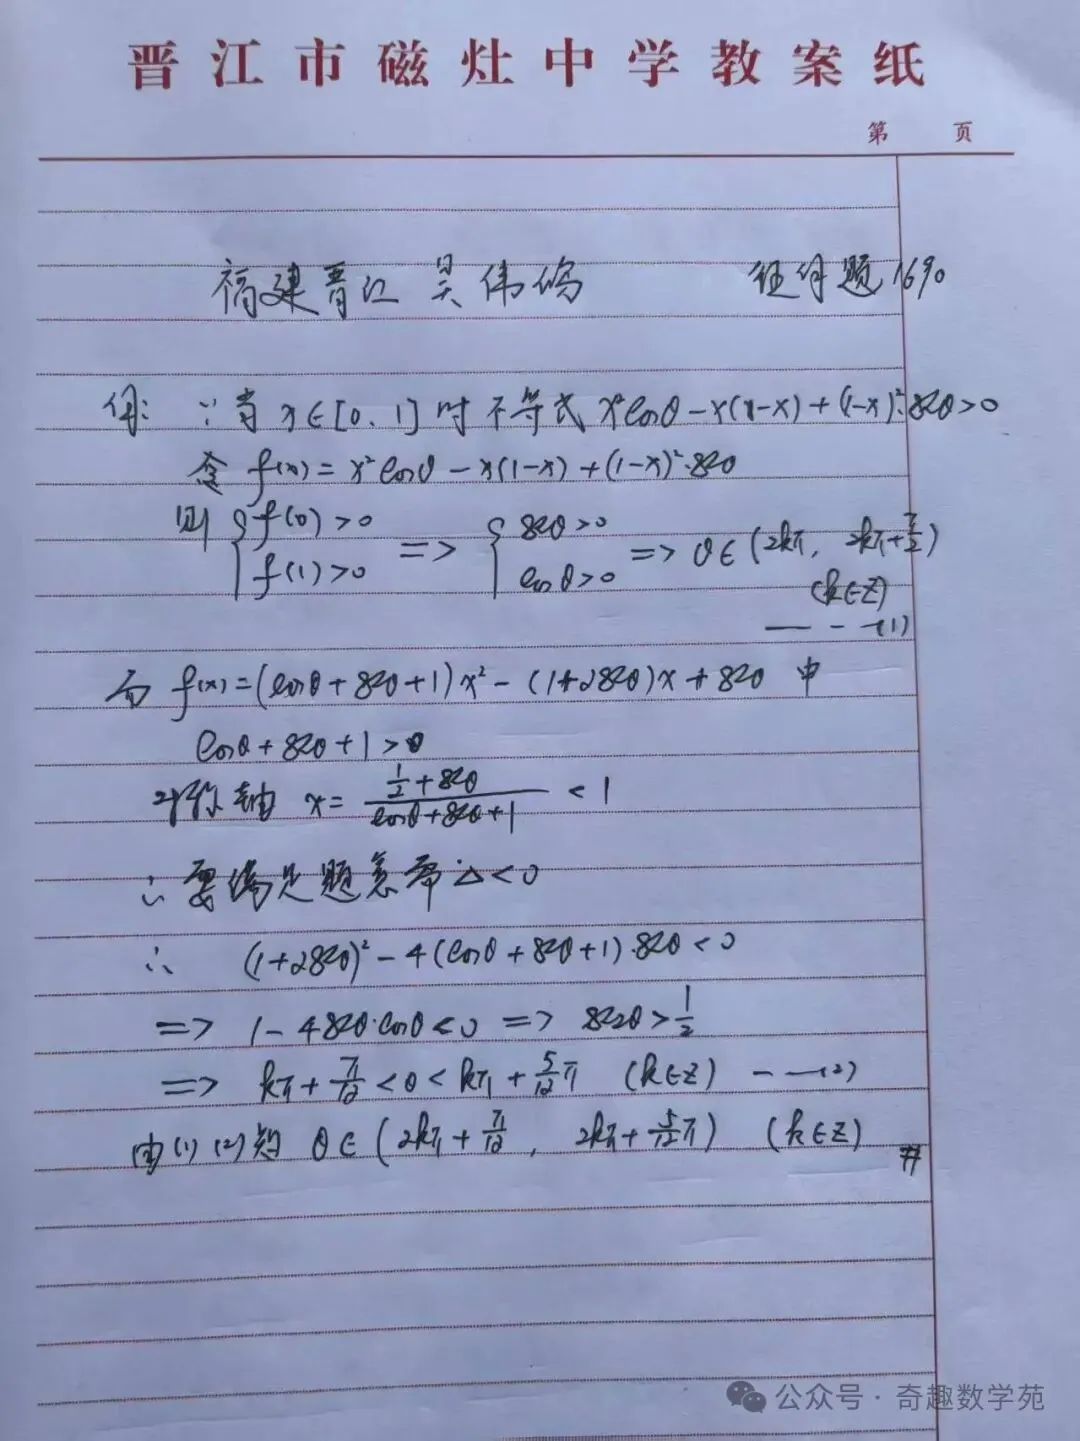 晋江市磁灶中学教案纸
第 页
福建晋江 吴伟 征解题1690
解: ∵当 x∈[0.1]时不等式 x²cosθ-x(1-x)+(1-x)²·sinθ>0
令 f(x)=x²cosθ-x(1-x)+(1-x)²·sinθ
则 { f(0)>0 f(1)>0 => { sinθ>0 cosθ>0 => θ∈(2kπ, 2kπ+π/2)
(k∈Z)
— - —(1)
而 f(x)=(cosθ+sinθ+1)x²-(1+2sinθ)x+sinθ 中
cosθ+sinθ+1>0
对称轴 x= (1/2+sinθ)/(cosθ+sinθ+1) <1
∴要满足题意需△<0
∴ (1+2sinθ)²-4(cosθ+sinθ+1)·sinθ<0
=> 1-4sinθ·cosθ<0 => sin2θ>1/2
=> kπ+π/12<θ<kπ+5/12π (k∈Z) — —(2)
由(1)(2)知 θ∈(2kπ+π/12, 2kπ+5/12π) (k∈Z) #
公众号·奇趣数学苑